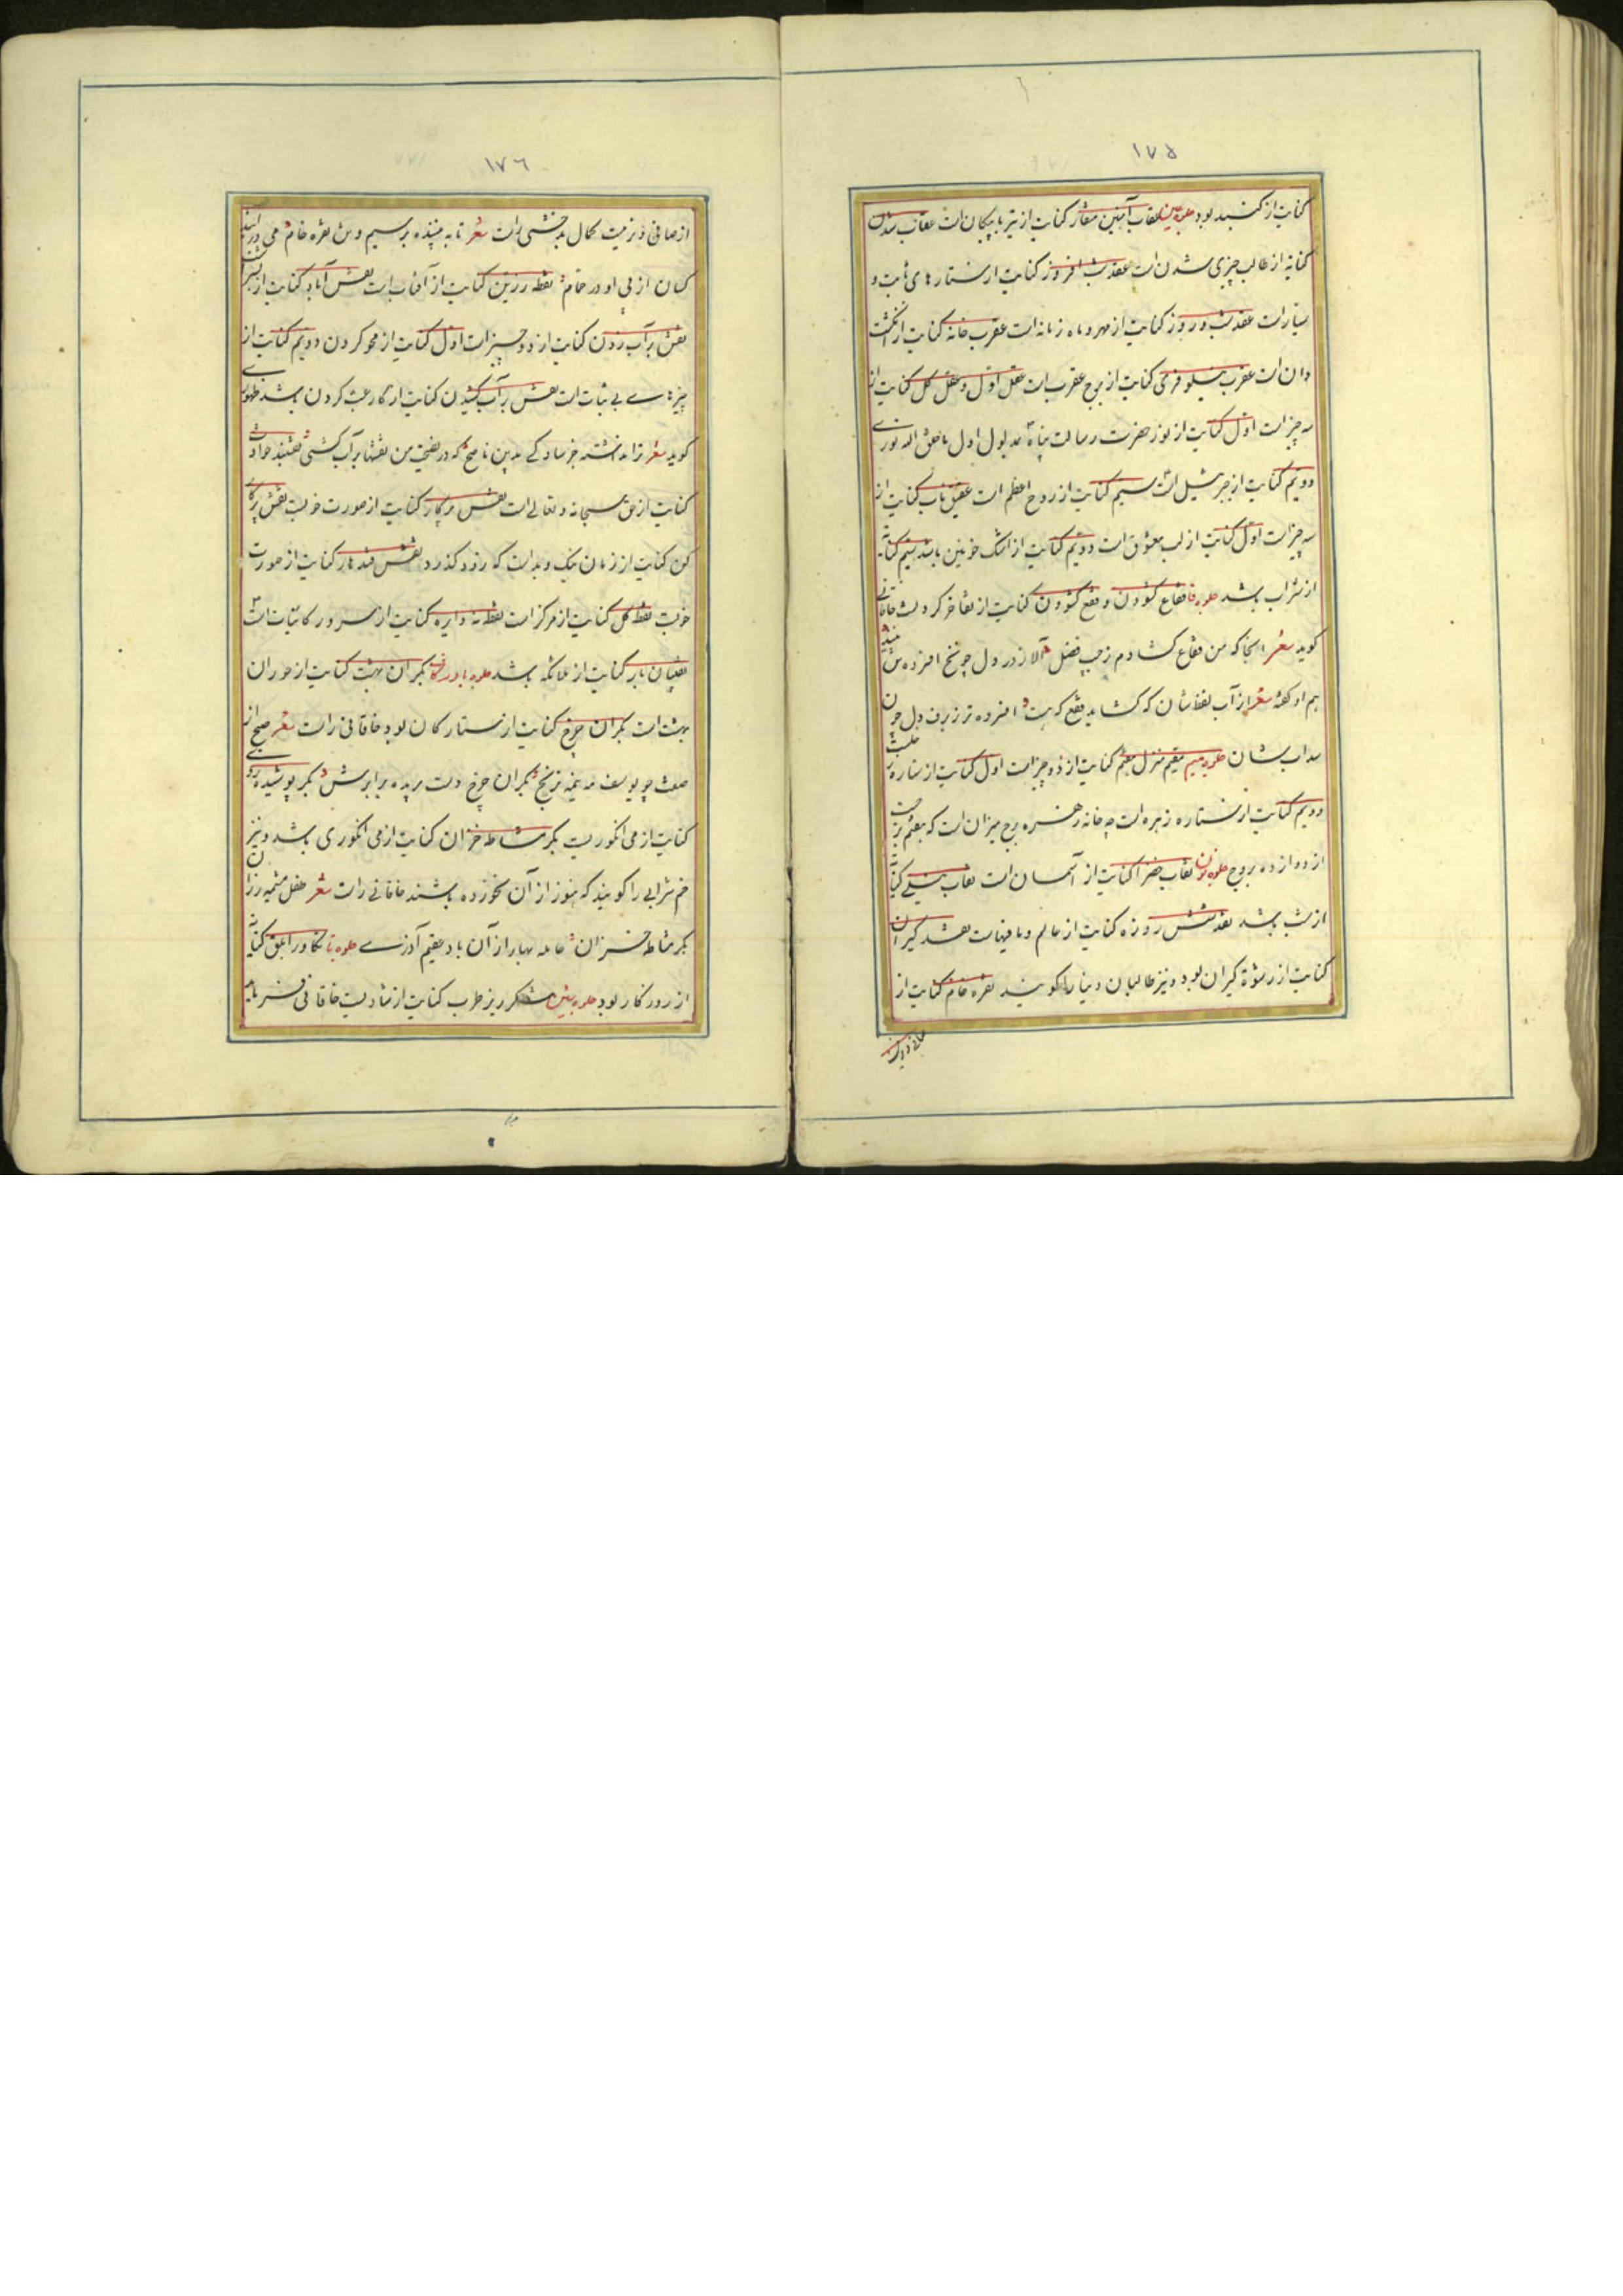 ١٧٥
کنایت از کنبد بود جلوه عین عقاب آهنین منقار کنایت از تیر با پیکان است عقاب شدن
کنایه از طالب چیزی شدن است عقد شب افروز کنایت از ستارهای ثابت و
سیارات عقد شب و روز کنایت از مهر و ماه زمانه است عقرب خانه کنایت از انکشت
دان است عقرب نیلوفری کنایت از برج عقرب است عقل اول و عقل کل کنایت از
سه چیز است اول کنایت از نور حضرت رسالت پناه مدلول اول ما خلق الله نوری
دویم کنایت از جبرئیل است سیم کنایت از روح اعظم است عقیق ناب کنایت از
سه چیز است اول کنایت از لب معشوق است دویم کنایت از اشک خونین باشد سیم کنایة
از شراب باشد جلوه فا فقاع کشودن و فقع کشودن کنایت از تفاخر کردنست خاقانی
کوید شعر انجا که من فقاع کشادم ز جیب فضل الا ز درد دل چو یخ افسرده
هم او کفته شعر از آب لفظشان که کشاید فقع که هست افسرده تر ز برف دل چون
سداب شان جلوه میم مقیم منزل هفتم کنایت از دو چیز است اول کنایت از ستاره
دویم کنایت از ستاره زهره است چه خانه زهره برج میزان است که هفتم برجست
از دوازده بروج جلوه نون نقاب خضرا کنایت از آسمان است نقاب نیلی کنایة
از شب باشد نقد شش روزه کنایت از عالم و مافیهاست نقد کیران
کنایت از رشوة کیران بود و نیز طالبان دنیا را کویند نقره خام کنایت از
١٧٦
از صافی و نرمیت کمال بدخشی راست شعر تا به بیننده بر سیم وش نقره خام می
کسان از پی او در خام نقطه زرین کنایت از آفتاب است نقش آباد کنایت از
نقش بر آب زدن کنایت از دو چیز است اول کنایت از محو کردن دویم کنایت از
چیزهای بی ثبات است نقش بر آب کشیدن کنایت از کار عبث کردن باشد ظهوری
کوید شعر ترا ننشسته جز ساده کی بدین ناصح که در نصیحت من نقشها بر آب کشی نقشبند حوادث
کنایت از حق سبحانه و تعالی است نقش پرکار کنایت از صورت خوبست نقش
کن کنایت از زمان نیک و بد است که زود کذرد نقش قندهار کنایت از صورت
خوب نقطه کل کنایت از مرکز است نقطه نه دایره کنایت از سرور کاینات است
نقیبان بار کنایت از ملائکه باشد جلوه با بکران بهشت کنایت از حوران
بهشت است بکران چرخ کنایت از ستارکان بود خاقانی راست شعر صبح از
صفت چو یوسف مه نیمه ترنج بکران چرخ دست بریده برابرش بکر پوشیده روی
کنایت از می انکوریست بکر مشاطه خزان کنایت از می انکوری باشد و نیز
خم شرابی را کویند که هنوز از آن نخورده باشند خاقانی راست شعر طفل مشیمه رزان
بکر مشاطه خزان حامله بهار از آن باد عقیم آذری جلوه تا تکاور ابلق کنایة
از روزکار بود جلوه شین شکر ریز طرب کنایت از شادیست خاقانی فرماید